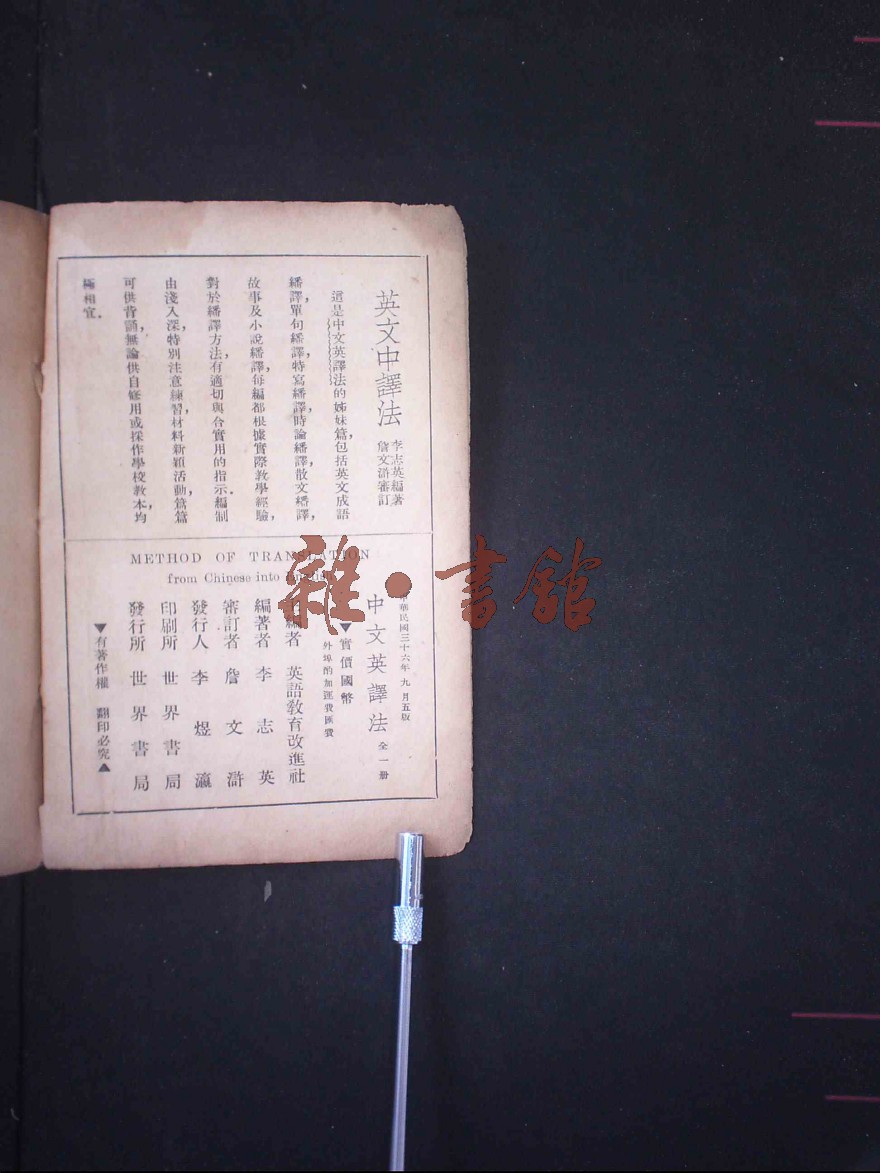 英文中譯法
李志英編著
詹文滸審訂
這是中文英譯法的姊妹篇，包括英文成語
繙譯，單句繙譯，特寫繙譯，時論繙譯，散文繙譯，
故事及小說繙譯，每編都根據實際教學經驗，
對於繙譯方法，有適切與合實用的指示．編制
由淺入深，特別注意練習，材料新穎活動，篇篇
可供背誦，無論供自修用或採作學校教本，均
極相宜．
METHOD OF TRANSLATION
from Chinese into
中華民國三十六年九月五版
中文英譯法 全一册
▼實價國幣
外埠酌加運費匯費
編者 英語敎育改進社
編著者 李志英
審訂者 詹文滸
發行人 李煜瀛
印刷所 世界書局
發行所 世界書局
▼有著作權 翻印必究▲
雜·書舘